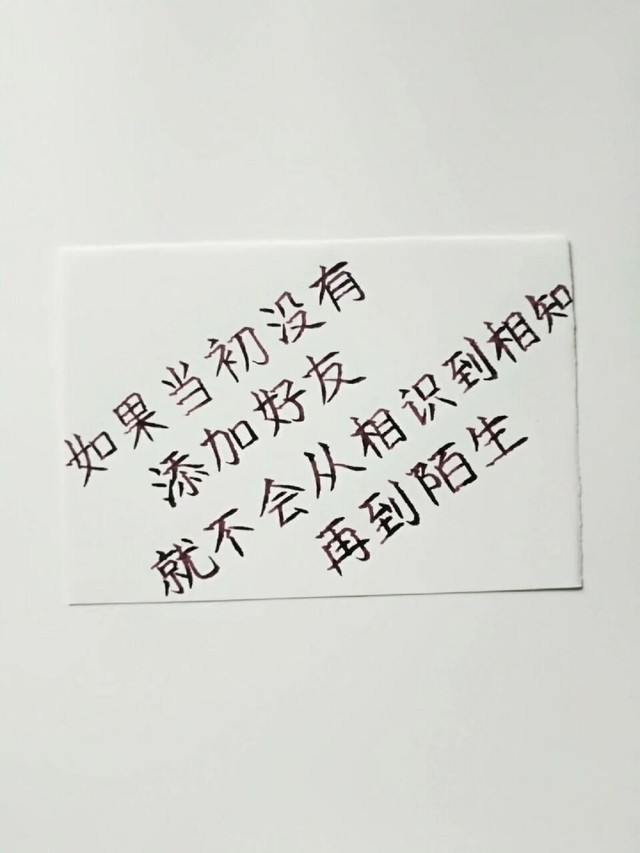 如果当初没有
添加好友
就不会从相识到相知
再到陌生